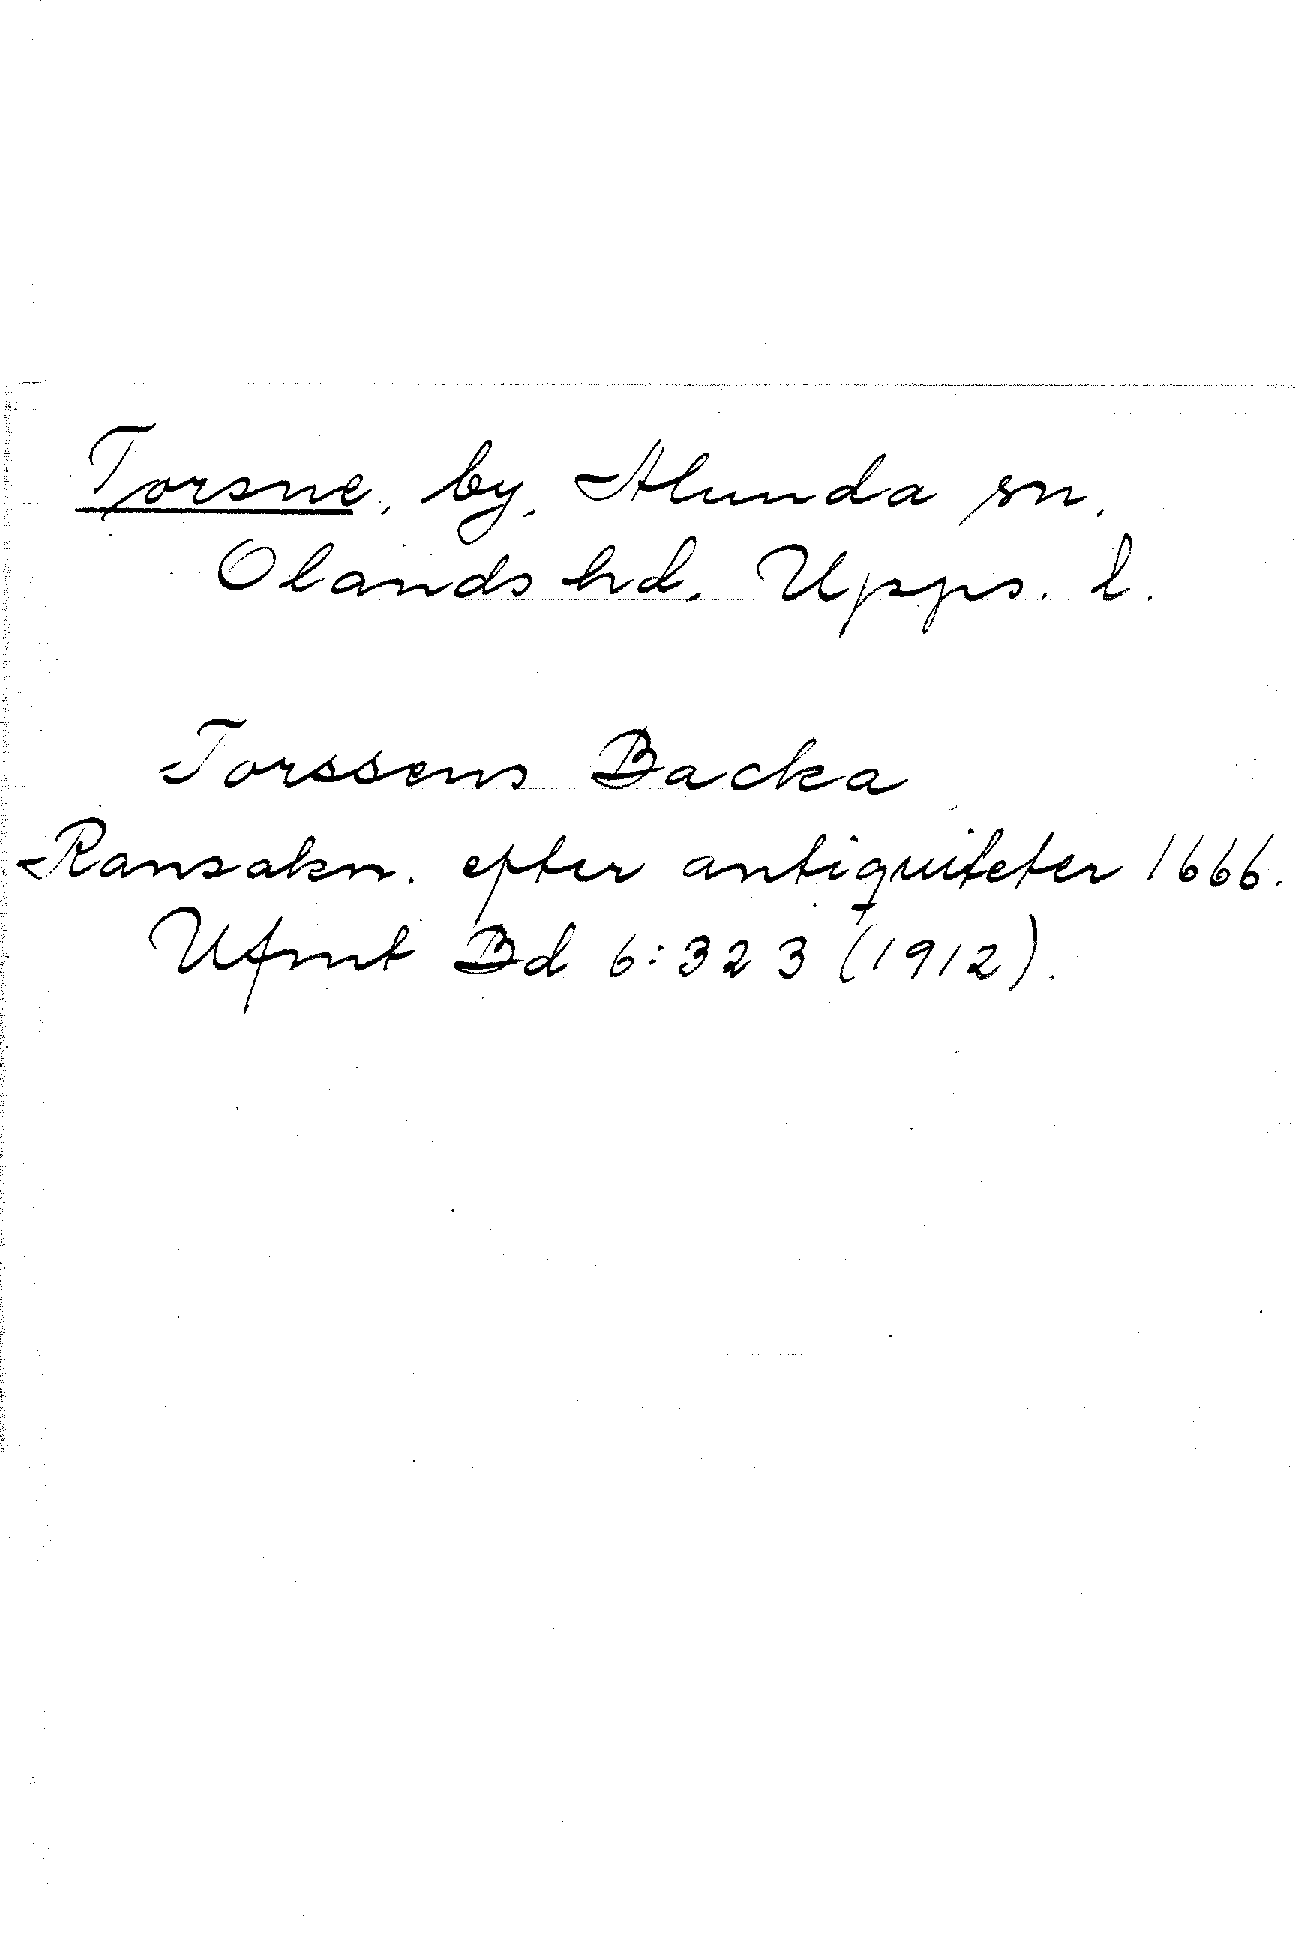 Torsne, by, Alunda sn.
Olands hd, Upps. l.
Torssens Backa
Ransakn. efter antiquiteter 1666.
Ufmt Bd 6:323 (1912).